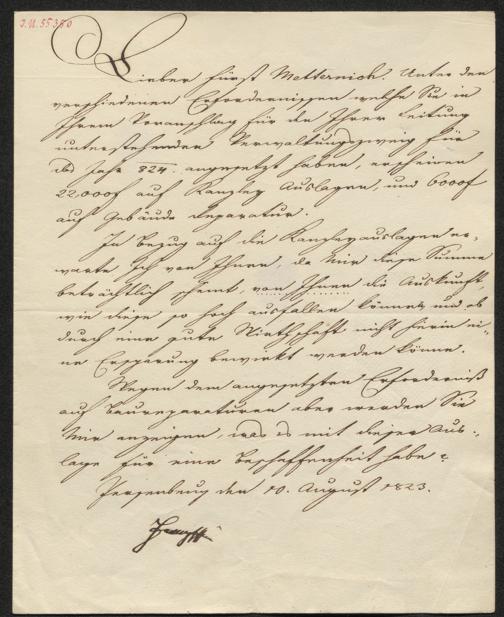 I.N. 55360
Lieber Fürst Metternich. Unter den
verschiedenen Erfordernissen welche Sie in
Ihrem Voranschlag für die Ihrer Leitung
unterstehenden Verwaltungszweig für
das Jahr 824. angesetzt haben, erscheinen
22,000f auf Kanzley Auslagen, und 6000f
auf Gebäude Reparatur.
In Bezug auf die Kanzleyauslagen er-
warte Ich von Ihnen, da Mir diese Summe
beträchtlich scheint, von Ihnen die Auskunft,
wie diese so hoch ausfallen können und ob
durch eine gute Wirthschaft nicht hierin ei-
ne Ersparung bewirkt werden könne.
Wegen dem angesetzten Erforderniß
auf Baureparaturen aber werden Sie
Mir anzeigen, was es mit dieser Aus-
lage für eine Beschaffenheit habe.
Persenbeug den 10. August 1823.
Franz